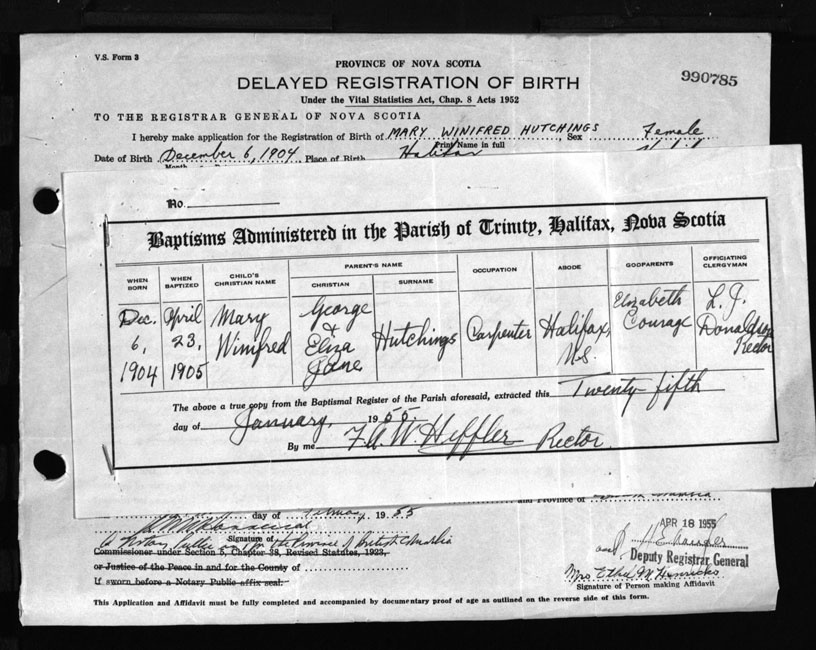 V.S. Form 3
PROVINCE OF NOVA SCOTIA
DELAYED REGISTRATION OF BIRTH
990785
Under the Vital Statistics Act, Chap. 8 Acts 1952
TO THE REGISTRAR GENERAL OF NOVA SCOTIA
I hereby make application for the Registration of Birth of MARY WINIFRED HUTCHINGS, Sex Female
Print Name in full
Date of Birth December 6, 1904 Place of Birth Halifax
No.
Baptisms Administered in the Parish of Trinity, Halifax, Nova Scotia
WHEN BORN WHEN BAPTIZED CHILD'S CHRISTIAN NAME PARENT'S NAME CHRISTIAN SURNAME OCCUPATION ABODE GODPARENTS OFFICIATING CLERGYMAN
Dec. 6, 1904 April 23, 1905 Mary Winifred George & Eliza Jane Hutchings Carpenter Halifax, N.S. Elizabeth Courage L. J. Donaldson Rector
The above a true copy from the Baptismal Register of the Parish aforesaid, extracted this Twenty-fifth
day of January, 1955.
By me F. A. W. Hiffler Rector
and Province of
day of 1955
APR 18 1955
Signature of
a Notary Public in & for the Province of British Columbia
Commissioner under Section 5, Chapter 38, Revised Statutes, 1923,
and Deputy Registrar General
or Justice of the Peace in and for the County of
Mrs Ethel M
If sworn before a Notary Public affix seal.
Signature of Person making Affidavit
This Application and Affidavit must be fully completed and accompanied by documentary proof of age as outlined on the reverse side of this form.